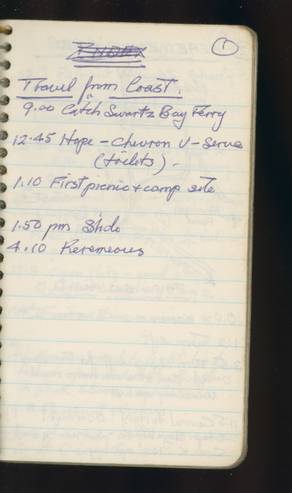 INDEX
1
Travel from Coast.
9.00 Catch Swartz Bay Ferry
12.45 Hope - Chevron U-Serve
(toilets) -
1.10 First picnic + camp site
1.50 pm
4.10 Keremeous